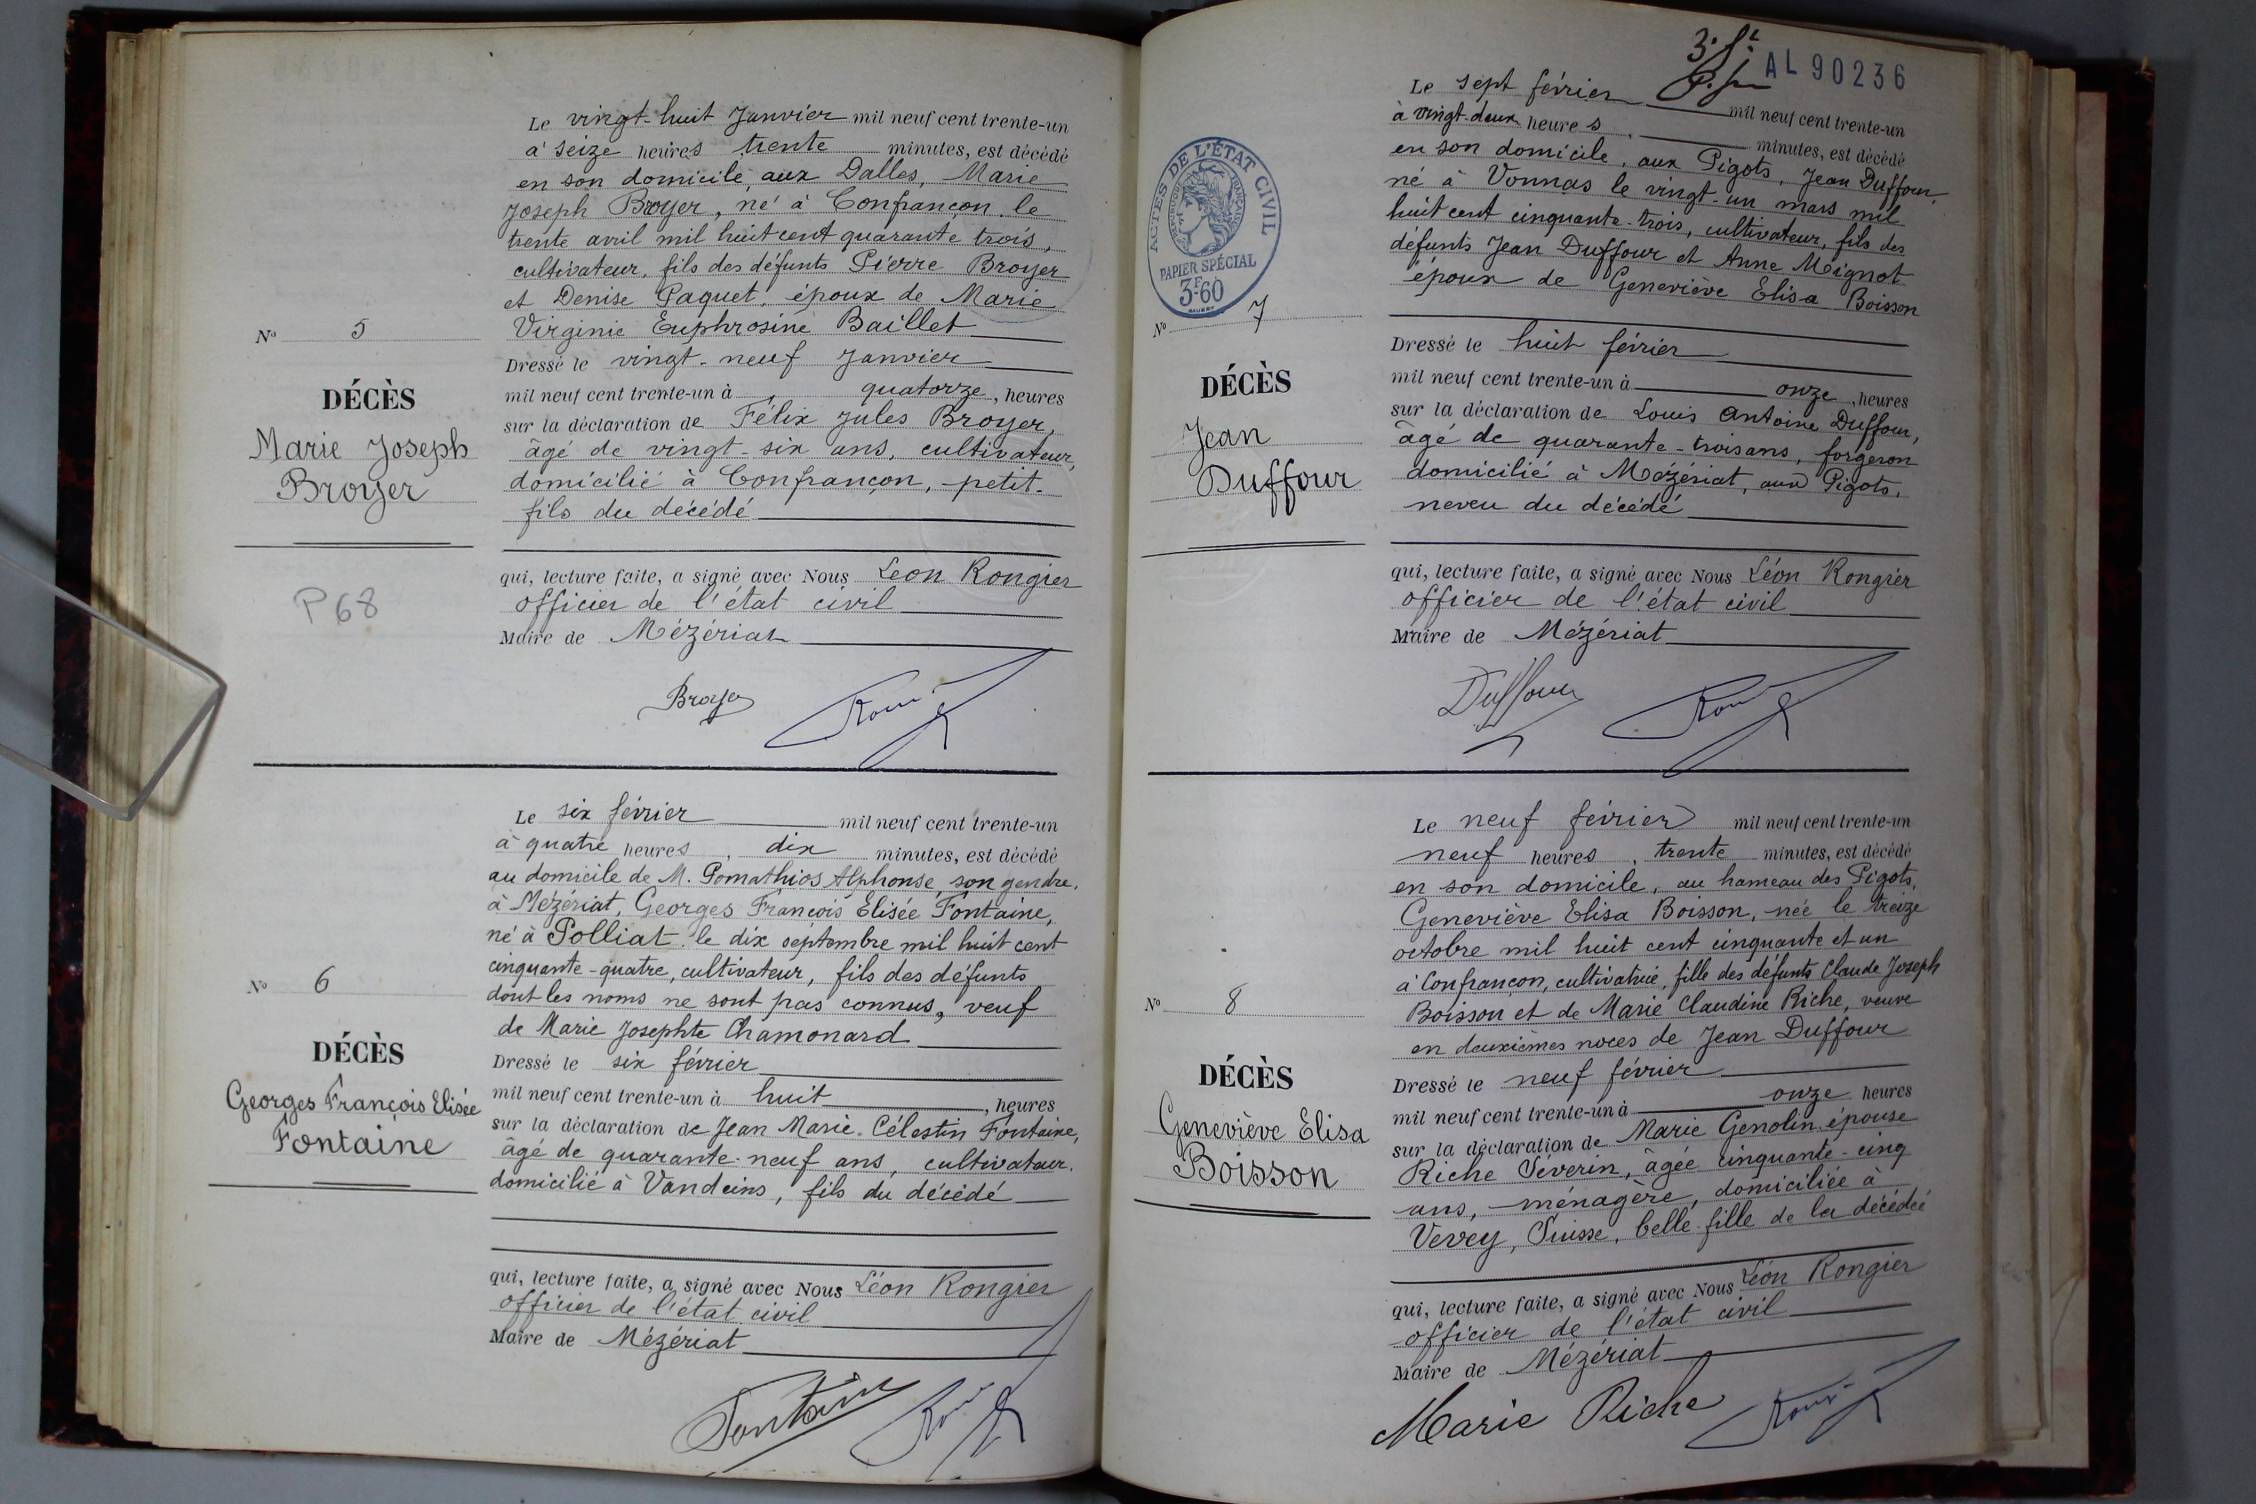 Le vingt-huit Janvier mil neuf cent trente-un
à seize heures trente minutes, est décédé
en son domicile, aux Dalles, Marie
Joseph Broyer, né à Confrançon le
trente avril mil huit cent quarante trois,
cultivateur, fils des défunts Pierre Broyer
et Denise Paquet, époux de Marie
Virginie Euphrosine Baillet
No 5
Dressé le vingt-neuf Janvier
mil neuf cent trente-un à quatorze, heures
DÉCÈS
Marie Joseph
Broyer
sur la déclaration de Félix Jules Broyer,
âgé de vingt-six ans, cultivateur,
domicilié à Confrançon, petit-
fils du décédé
P68
qui, lecture faite, a signé avec Nous Léon Rongier
officier de l'état civil
Maire de Mézériat
Broyer
Le six février mil neuf cent trente-un
à quatre heures, dix minutes, est décédé
au domicile de M. Pomathios Alphonse, son gendre,
à Mézériat, Georges François Elisée Fontaine,
né à Polliat le dix septembre mil huit cent
cinquante-quatre, cultivateur, fils des défunts
dont les noms ne sont pas connus, veuf
de Marie Josephte Chamonard
No 6
Dressé le six février
mil neuf cent trente-un à huit, heures
DÉCÈS
Georges François Elisée
Fontaine
sur la déclaration de Jean Marie Célestin Fontaine,
âgé de quarante-neuf ans, cultivateur,
domicilié à Vandeins, fils du décédé
qui, lecture faite, a signé avec Nous Léon Rongier
officier de l'état civil
Maire de Mézériat
Fontaine
AL 90236
Le sept février mil neuf cent trente-un
à vingt-deux heures, minutes, est décédé
en son domicile, aux Pigots, Jean Duffour,
né à Vonnas le vingt-un mars mil
huit cent cinquante-trois, cultivateur, fils des
défunts Jean Duffour et Anne Mignot
époux de Geneviève Elisa Boisson
ACTES DE L'ÉTAT CIVIL
PAPIER SPÉCIAL
3F60
No 7
Dressé le huit février
mil neuf cent trente-un à onze, heures
DÉCÈS
Jean
Duffour
sur la déclaration de Louis Antoine Duffour,
âgé de quarante-trois ans, forgeron
domicilié à Mézériat, aux Pigots,
neveu du décédé
qui, lecture faite, a signé avec Nous Léon Rongier
officier de l'état civil
Maire de Mézériat
Duffour
Le neuf février mil neuf cent trente-un
neuf heures, trente minutes, est décédé
en son domicile, au hameau des Pigots,
Geneviève Elisa Boisson, née le treize
octobre mil huit cent cinquante et un
à Confrançon, cultivatrice, fille des défunts Claude Joseph
Boisson et de Marie Claudine Riche, veuve
en deuxièmes noces de Jean Duffour
No 8
Dressé le neuf février
mil neuf cent trente-un à onze heures
DÉCÈS
Geneviève Elisa
Boisson
sur la déclaration de Marie Genolin épouse
Riche Séverin, âgée cinquante-cinq
ans, ménagère, domiciliée à
Vevey, Suisse, belle-fille de la décédée
qui, lecture faite, a signé avec Nous Léon Rongier
officier de l'état civil
Maire de Mézériat
Marie Riche